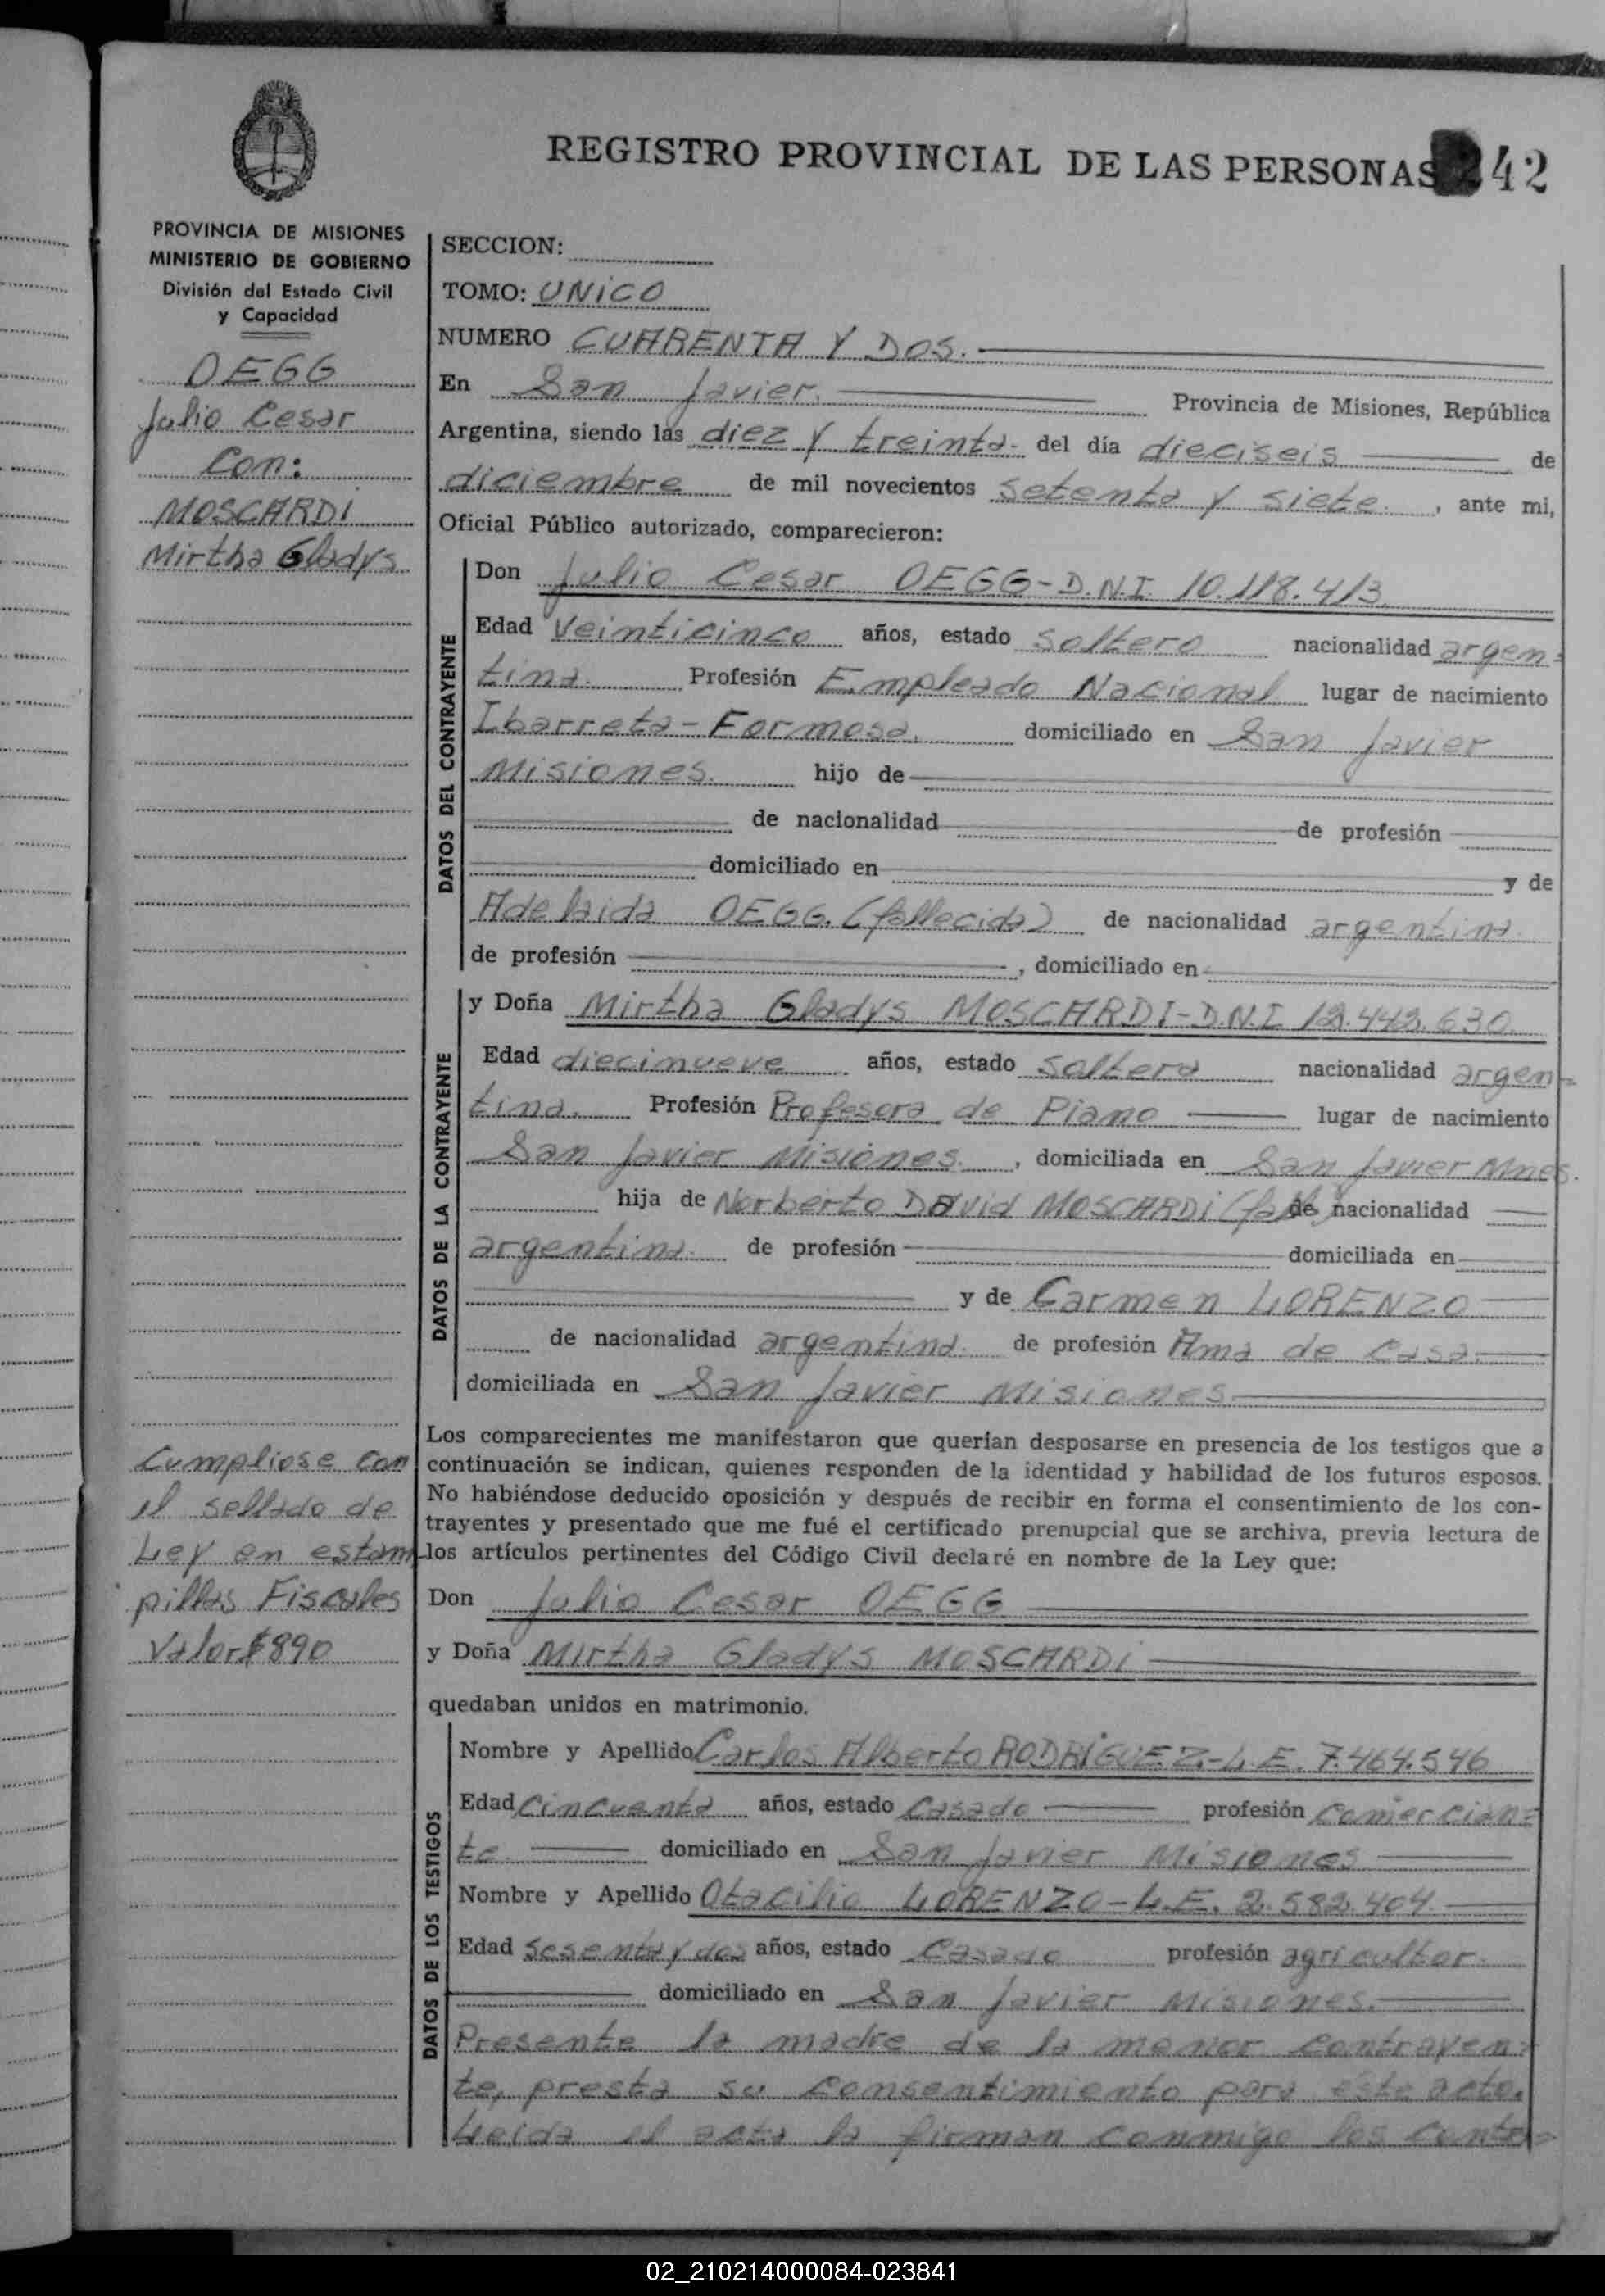 REGISTRO PROVINCIAL DE LAS PERSONAS 42
PROVINCIA DE MISIONES
MINISTERIO DE GOBIERNO
División del Estado Civil
y Capacidad
OEGG
Julio Cesar
Con:
MOSCARDI
Mirtha Gladys
SECCION:
TOMO: UNICO
NUMERO CUARENTA Y DOS.
En San Javier. Provincia de Misiones, República
Argentina, siendo las diez y treinta del día dieciseis de
diciembre de mil novecientos setenta y siete. , ante mi,
Oficial Público autorizado, comparecieron:
DATOS DEL CONTRAYENTE
Don Julio Cesar OEGG-D.N.I. 10.118.413.
Edad Veinticinco años, estado soltero nacionalidad argen=
tina. Profesión Empleado Nacional lugar de nacimiento
Ibarreta-Formosa. domiciliado en San Javier
Misiones. hijo de
de nacionalidad de profesión
domiciliado en y de
Adelaida OEGG. (fallecida) de nacionalidad argentina.
de profesión , domiciliado en
DATOS DE LA CONTRAYENTE
y Doña Mirtha Gladys MOSCARDI-D.N.I 12.442.630.
Edad diecinueve años, estado soltera nacionalidad argen=
tina. Profesión Profesora de Piano lugar de nacimiento
San Javier Misiones. , domiciliada en San Javier Mnes.
hija de Norberto David MOSCARDI (fall) de nacionalidad
argentina. de profesión domiciliada en
y de Carmen LORENZO
de nacionalidad argentina. de profesión Ama de Casa.
domiciliada en San Javier Misiones
Los comparecientes me manifestaron que querían desposarse en presencia de los testigos que a
continuación se indican, quienes responden de la identidad y habilidad de los futuros esposos.
No habiéndose deducido oposición y después de recibir en forma el consentimiento de los con-
trayentes y presentado que me fué el certificado prenupcial que se archiva, previa lectura de
los artículos pertinentes del Código Civil declaré en nombre de la Ley que:
Cumpliose con
el sellado de
Ley en estam
pillas Fiscales
Valor $890
Don Julio Cesar OEGG
y Doña Mirtha Gladys MOSCARDI
quedaban unidos en matrimonio.
DATOS DE LOS TESTIGOS
Nombre y Apellido Carlos Alberto RODRIGUEZ-L.E. 7.464.546
Edad Cincuenta años, estado Casado profesión Comercian=
te. domiciliado en San Javier Misiones
Nombre y Apellido Otacilio LORENZO-L.E. 2.582.404.
Edad Sesenta y dos años, estado Casado profesión agricultor.
domiciliado en San Javier Misiones.
Presente la madre de la menor contrayen=
te, presta su consentimiento para este acto.
Leida el acta la firman conmigo los contra=
02_210214000084-023841